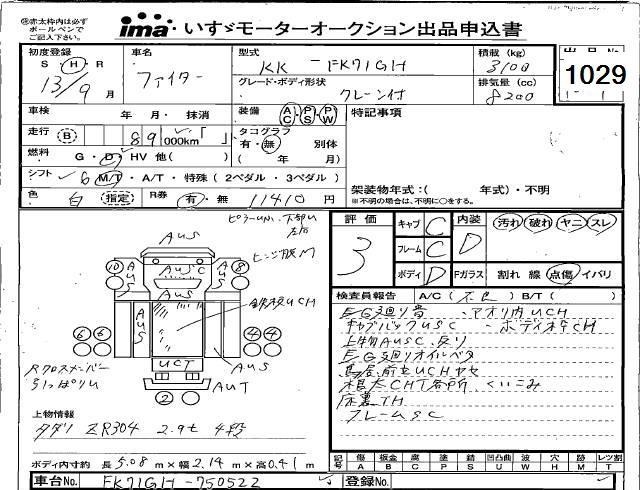 ※赤太枠内は必ず
ボールペンで
ご記入下さい。
ima・いすゞモーターオークション出品申込書
初度登録
S・H・R
13/9月
車名
ファイター
型式
KK - FK71GH
積載 (kg)
3100
出品No.
1029
グレード・ボディ形状
クレーン付
排気量 (cc)
8200
車検 年・月・抹消
装備 AC・PS・PW
特記事項
走行 B 89 000km「 」
タコグラフ
有・無 別体
( 年 月)
燃料 G・D・HV 他( )
シフト 6 M/T・A/T・特殊(2ペダル・3ペダル)
色 白 指定
R券 有・無 11410円
架装物年式:( 年式)・不明
※不明の場合は、不明に○をする。
AUS
AUSC
AUS
AUS
AUS
AUS
AUS
UCT
AUT
10
8
6 6
4 4
2
Rクロスメンバー
引っぱりU
上物情報
タダノ ZR304 2.9t 4段
ボディ内寸約 長5.08m×幅2.14m×高0.41m
車台No. FK71GH-750522
登録No.
評価
3
キャブ C
フレーム C
ボディ D
内装 D
汚れ・破れ・ヤニ・スレ
Fガラス 割れ 線 点傷・イバリ
検査員報告 A/C(不良) B/T( )
E/G廻り音 アオリ内UCH
キャブバックUSC ・ボディオキCH
上物AUSC、反り
E/G廻りオイルベタ
鳥居前立UCHヤセ
根太CHT各所 くいこみ
床裏TH
フレームSC
記号
傷 A
板金 B
腐 C
塗 P
錆 S
凹凸曲 U
波 W
穴 H
跡 M
減 T
レツ割 T